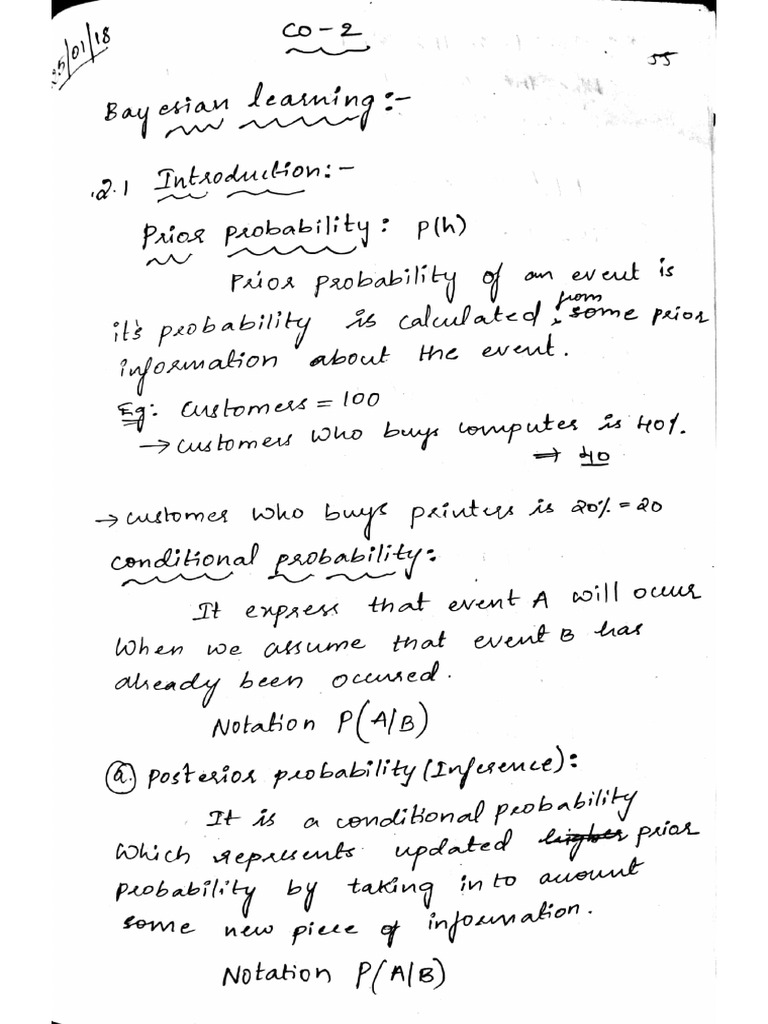 25/01/18
CO-2
55
Bayesian learning:-
2.1 Introduction:-
Prior probability: p(h)
Prior probability of an event is
it's probability is calculated from some prior
information about the event.
Eg: Customers = 100
→ customers who buys computer is 40%.
⇒ 40
→ customer who buys printers is 20% = 20
conditional probability:
It express that event A will occur
When we assume that event B has
already been occured.
Notation P(A/B)
a. Posterior probability (Inference):
It is a conditional probability
Which represents updated higher prior
probability by taking in to account
some new piece of information.
Notation P(A/B)